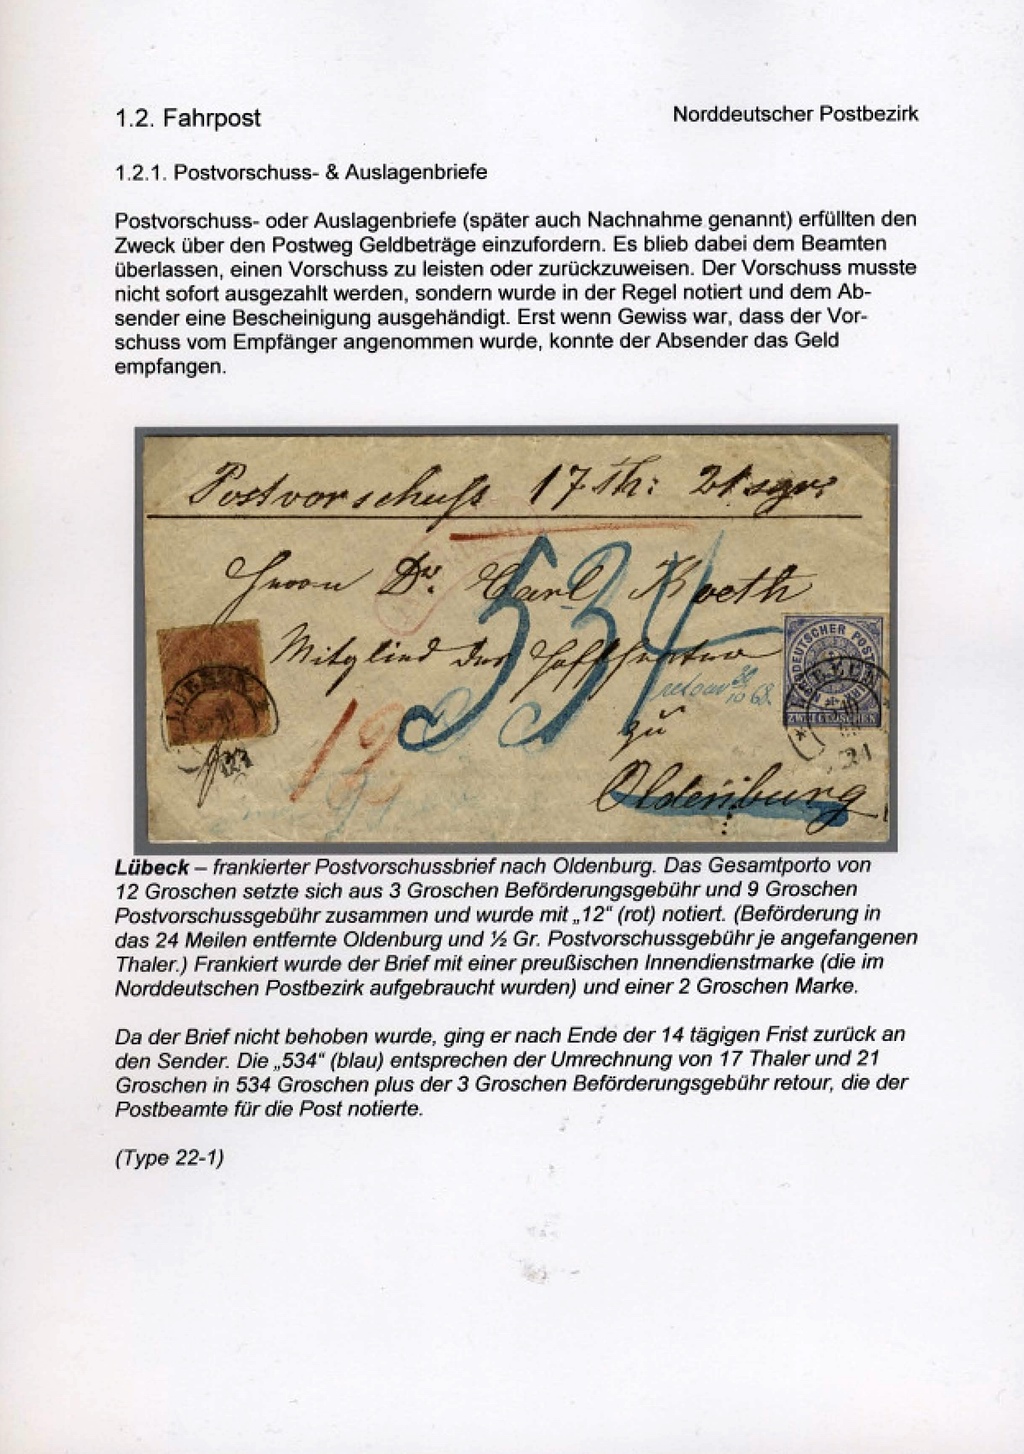 1.2. Fahrpost
Norddeutscher Postbezirk
1.2.1. Postvorschuss- & Auslagenbriefe
Postvorschuss- oder Auslagenbriefe (später auch Nachnahme genannt) erfüllten den
Zweck über den Postweg Geldbeträge einzufordern. Es blieb dabei dem Beamten
überlassen, einen Vorschuss zu leisten oder zurückzuweisen. Der Vorschuss musste
nicht sofort ausgezahlt werden, sondern wurde in der Regel notiert und dem Ab-
sender eine Bescheinigung ausgehändigt. Erst wenn Gewiss war, dass der Vor-
schuss vom Empfänger angenommen wurde, konnte der Absender das Geld
empfangen.
Postvorschuß 17 th: 21 sgr:
Herrn Dr. Carl
534
Mitglied der
retour 30/10 68.
NORDDEUTSCHER POST
ZWEI GROSCHEN
12
zu
Oldenburg
Lübeck – frankierter Postvorschussbrief nach Oldenburg. Das Gesamtporto von
12 Groschen setzte sich aus 3 Groschen Beförderungsgebühr und 9 Groschen
Postvorschussgebühr zusammen und wurde mit „12“ (rot) notiert. (Beförderung in
das 24 Meilen entfernte Oldenburg und ½ Gr. Postvorschussgebühr je angefangenen
Thaler.) Frankiert wurde der Brief mit einer preußischen Innendienstmarke (die im
Norddeutschen Postbezirk aufgebraucht wurden) und einer 2 Groschen Marke.
Da der Brief nicht behoben wurde, ging er nach Ende der 14 tägigen Frist zurück an
den Sender. Die „534“ (blau) entsprechen der Umrechnung von 17 Thaler und 21
Groschen in 534 Groschen plus der 3 Groschen Beförderungsgebühr retour, die der
Postbeamte für die Post notierte.
(Type 22-1)